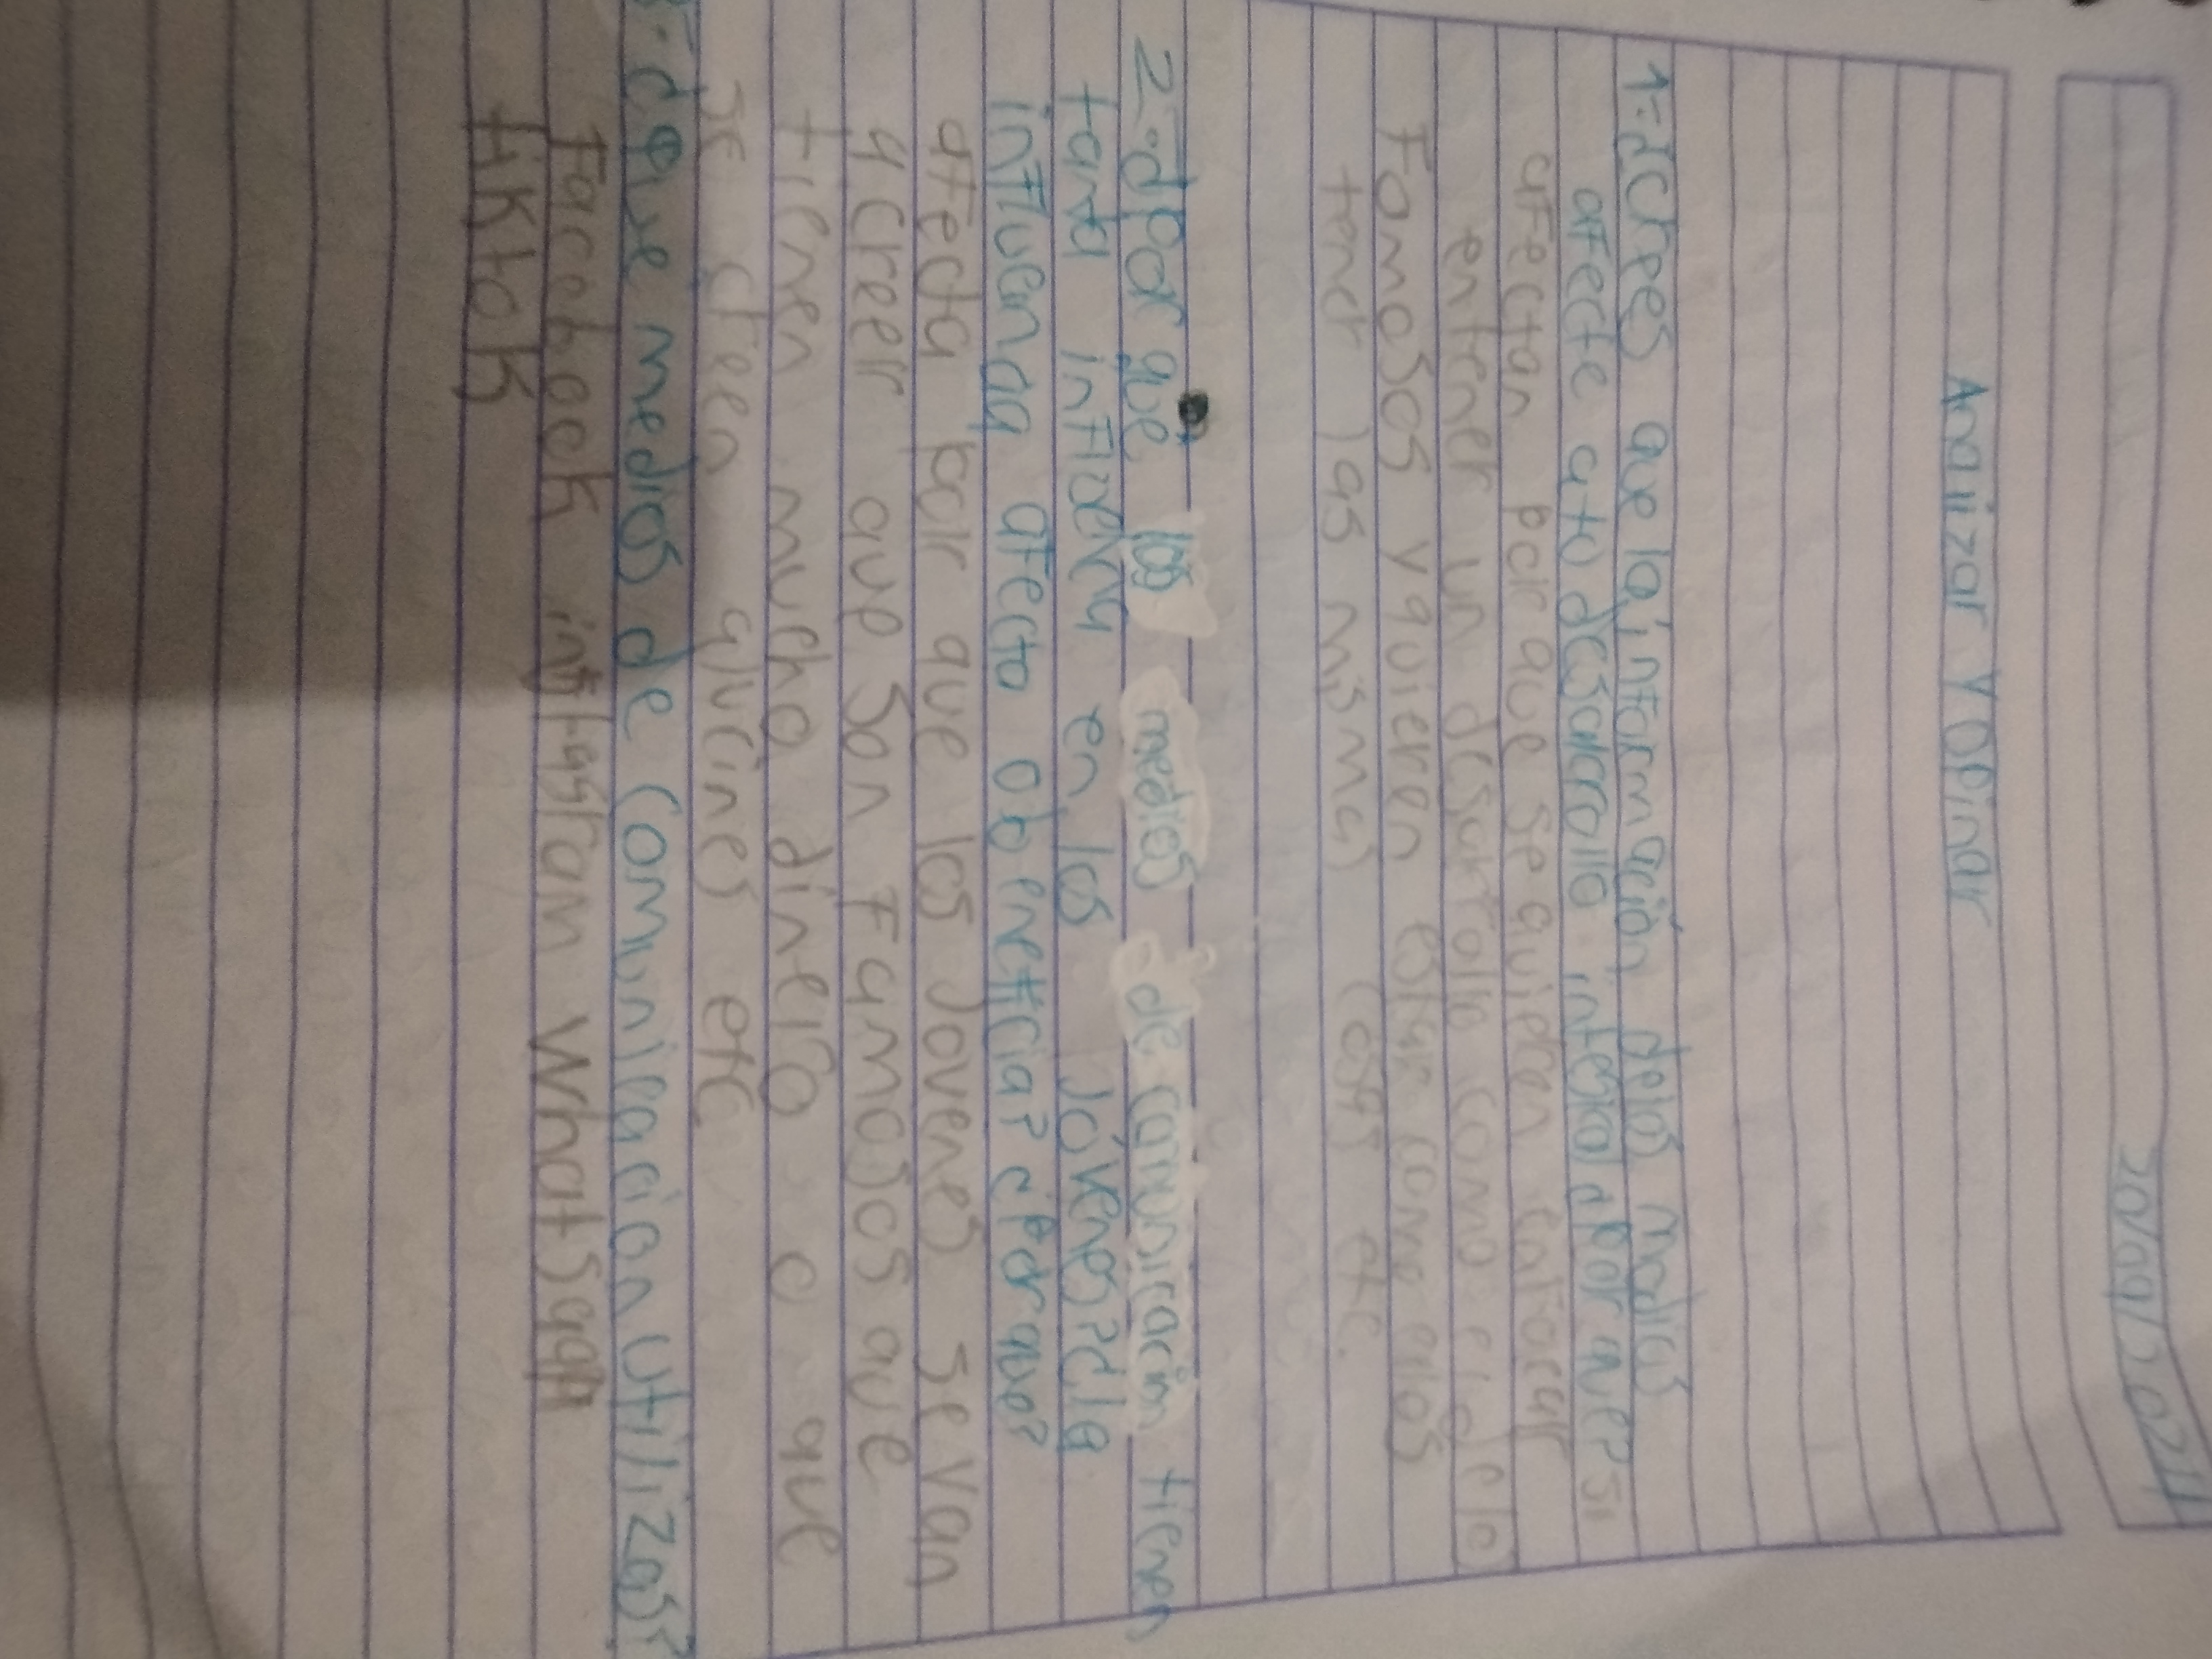 20/09/2024
Analizar Y Opinar
1-¿Crees que la información delos medios
afecte ato desarrollo integral ¿por que? si
afectan por que se quieren enfocar
entener un desarrollo como
Famosos y quieren estar como ellos
tener las mismas cosas etc.
2-¿por que los medios de comunicación tienen
tanta influeny en los Jóvenes?¿la
influenda afecto o beneficia? ¿Por que?
afecta por que los Jovenes se van
a creer que Son Famosos que
tienen mucho dinero o que
se creen etc
3-¿que medios de comunicacion utilizas?
Facebook intragram WhatSapp
tiktok